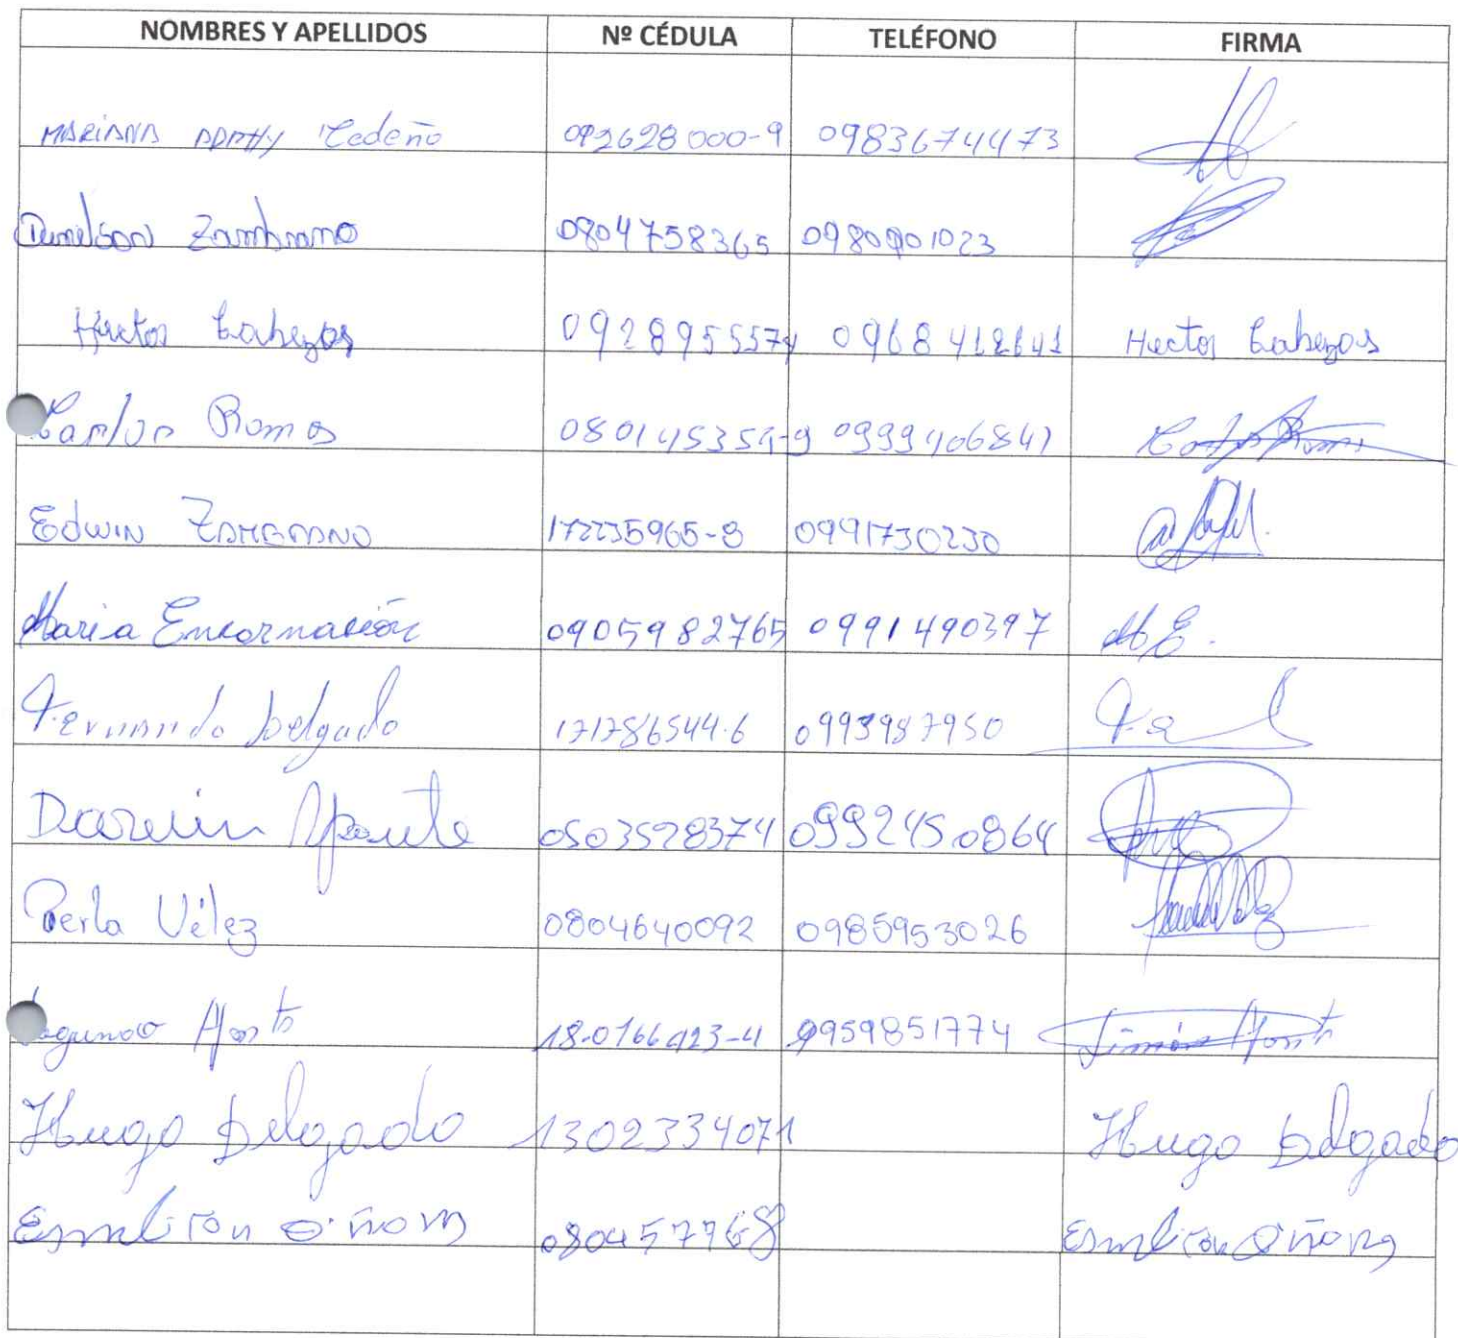 NOMBRES Y APELLIDOS Nº CÉDULA TELÉFONO FIRMA
MARIANA Cedeño 092628000-9 0983674473
Zambrano 0804758365 0980901023
Hector Cabezas 0928955574 0968412641 Hector Cabezas
Carlos Ramos 080145354-9 0999406841
Edwin ZAMBRANO 172235965-8 0991730230
Maria Encarnación 0905982765 0991490397 M.E.
Fernando Delgado 171786544-6 0993987950
Darwin Apaute 0503528374 0992450864
Perla Vélez 0804640092 0985953026
Segundo 18-0166423-4 0959851774
Hugo Delgado 1302334071 Hugo Delgado
080457768